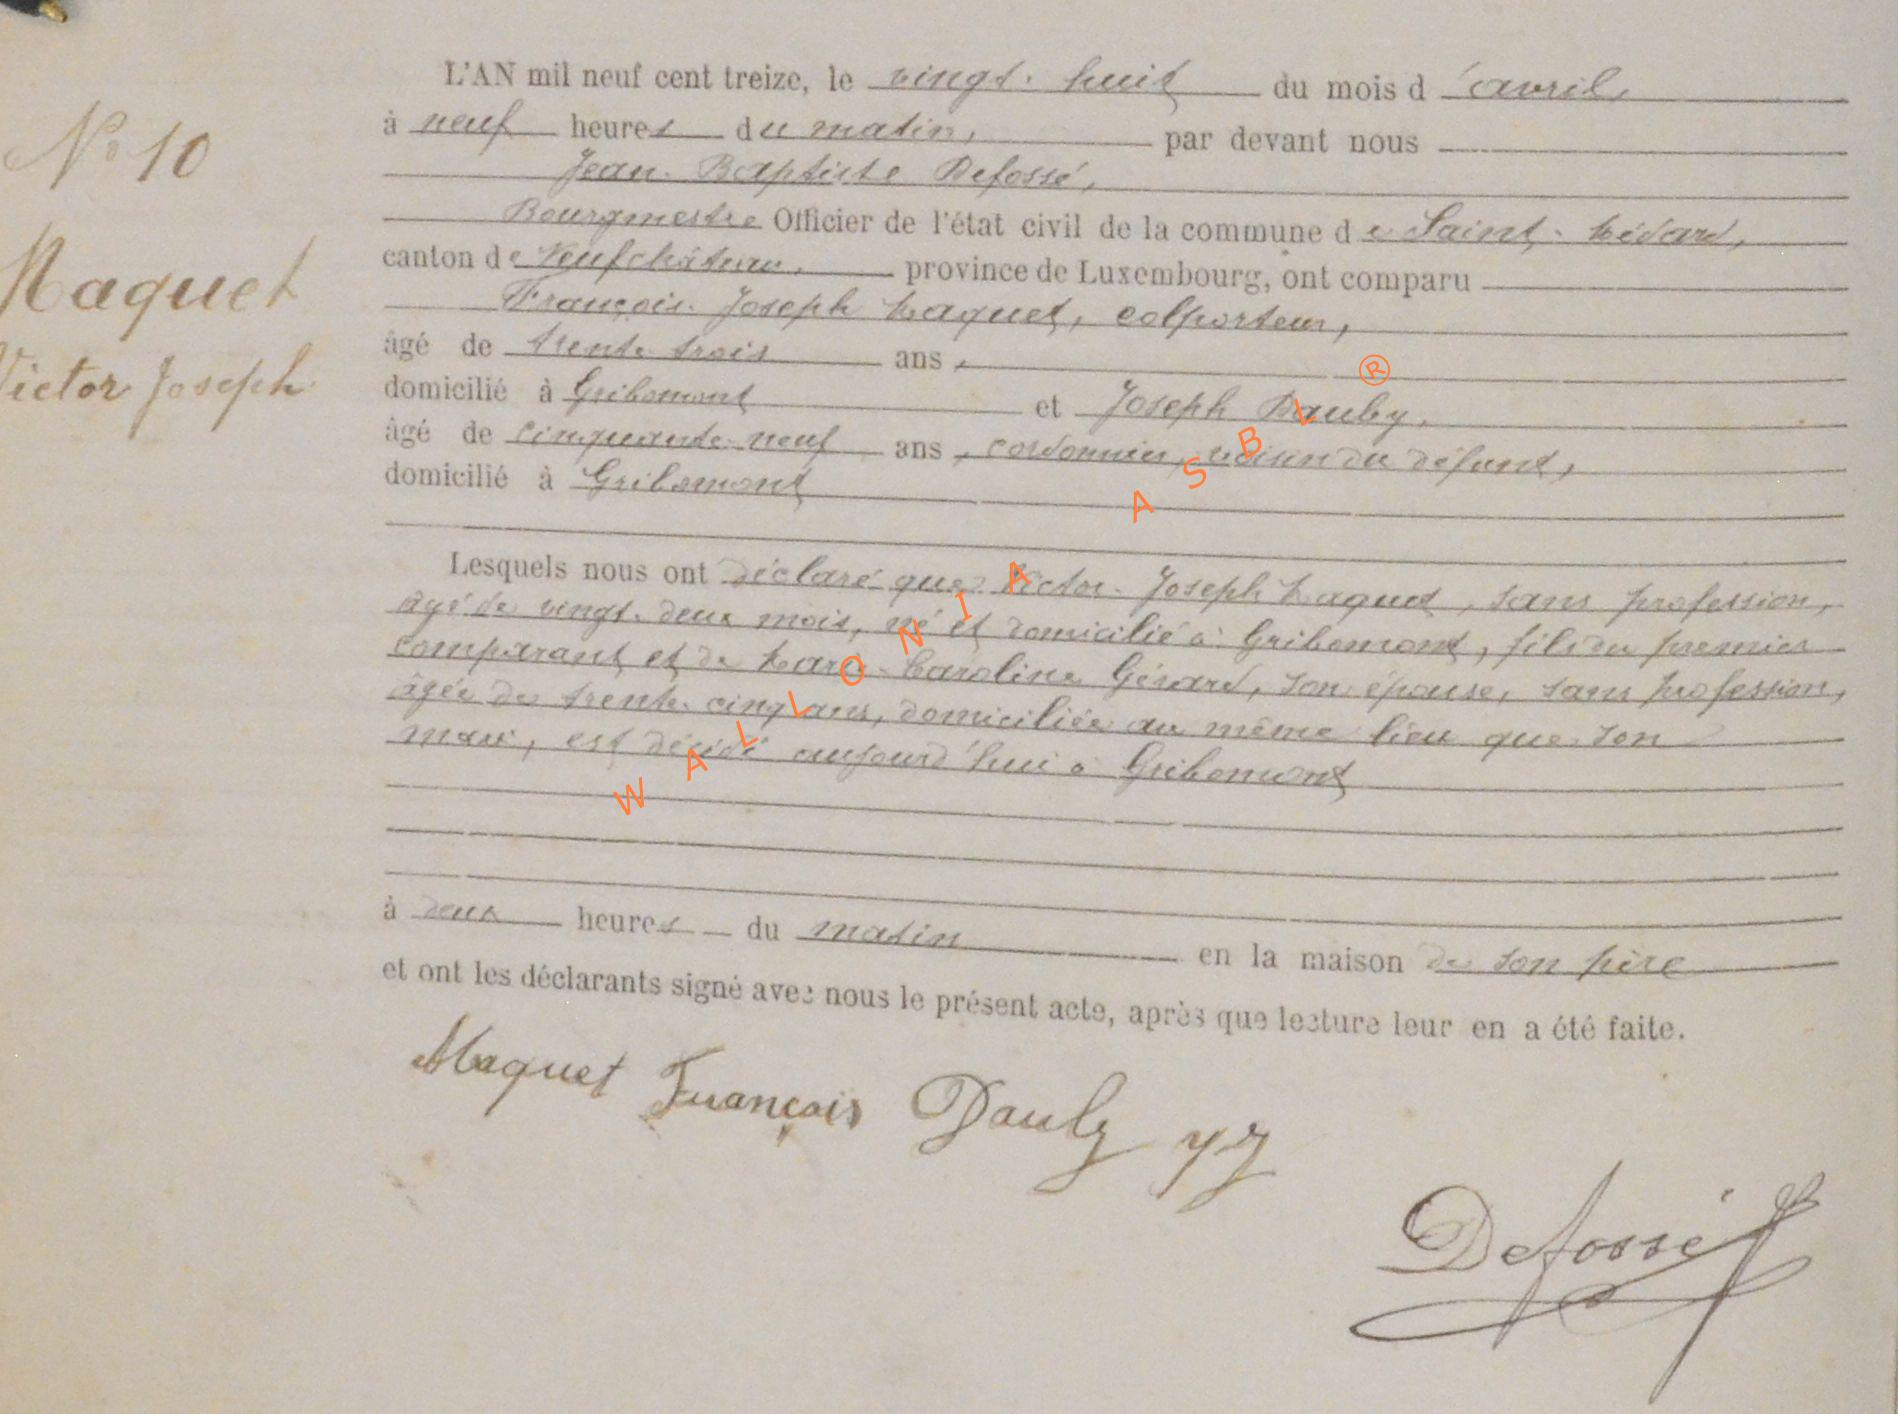 L'AN mil neuf cent treize, le vingt-huit du mois d'avril,
N° 10
à neuf heures du matin, par devant nous
Jean-Baptiste Defossé,
Bourgmestre Officier de l'état civil de la commune de Saint-Médard,
Maquet
Victor Joseph
canton de Neufchâteau, province de Luxembourg, ont comparu
François-Joseph Maquet, colporteur,
âgé de trente-trois ans,
domicilié à Gribomont et Joseph Dauby,
âgé de cinquante-neuf ans, cordonnier, voisin du défunt,
domicilié à Gribomont
Lesquels nous ont déclaré que Victor-Joseph Maquet, sans profession,
âgé de vingt-deux mois, né et domicilié à Gribomont, fils du premier
comparant et de Marie-Caroline Gérard, son épouse, sans profession,
âgée de trente-cinq ans, domiciliée au même lieu que son
mari, est décédé aujourd'hui à Gribomont
à deux heures du matin en la maison de son père
et ont les déclarants signé avec nous le présent acte, après que lecture leur en a été faite.
Maquet François Dauby
Defossé
WALLONIA ASBL ®